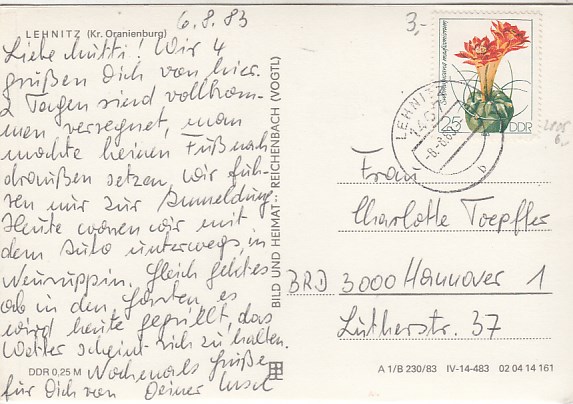 6.8.83
LEHNITZ (Kr. Oranienburg)
3,-
Liebe Mutti! Wir 4
grüßen Dich von hier.
2 Tagen sind vollkom-
men verregnet, man
mochte keinen Fuß nach
draußen setzen, wir fuh-
ren nur zur Anmeldung.
Heute waren wir mit
dem Auto unterwegs in
Neuruppin. Gleich geht es
ab in den Garten, es
wird heute gegrillt, das
Wetter scheint sich zu halten.
Nochmals Grüße
für Dich von Deiner
DDR 0,25 M
BILD UND HEIMAT · REICHENBACH (VOGTL)
25 DDR
LEHNITZ
-8.8.83
b
Frau
Charlotte Toepffer
BRD 3000 Hannover 1
Lutherstr. 37
A 1/B 230/83 IV-14-483 02 04 14 161